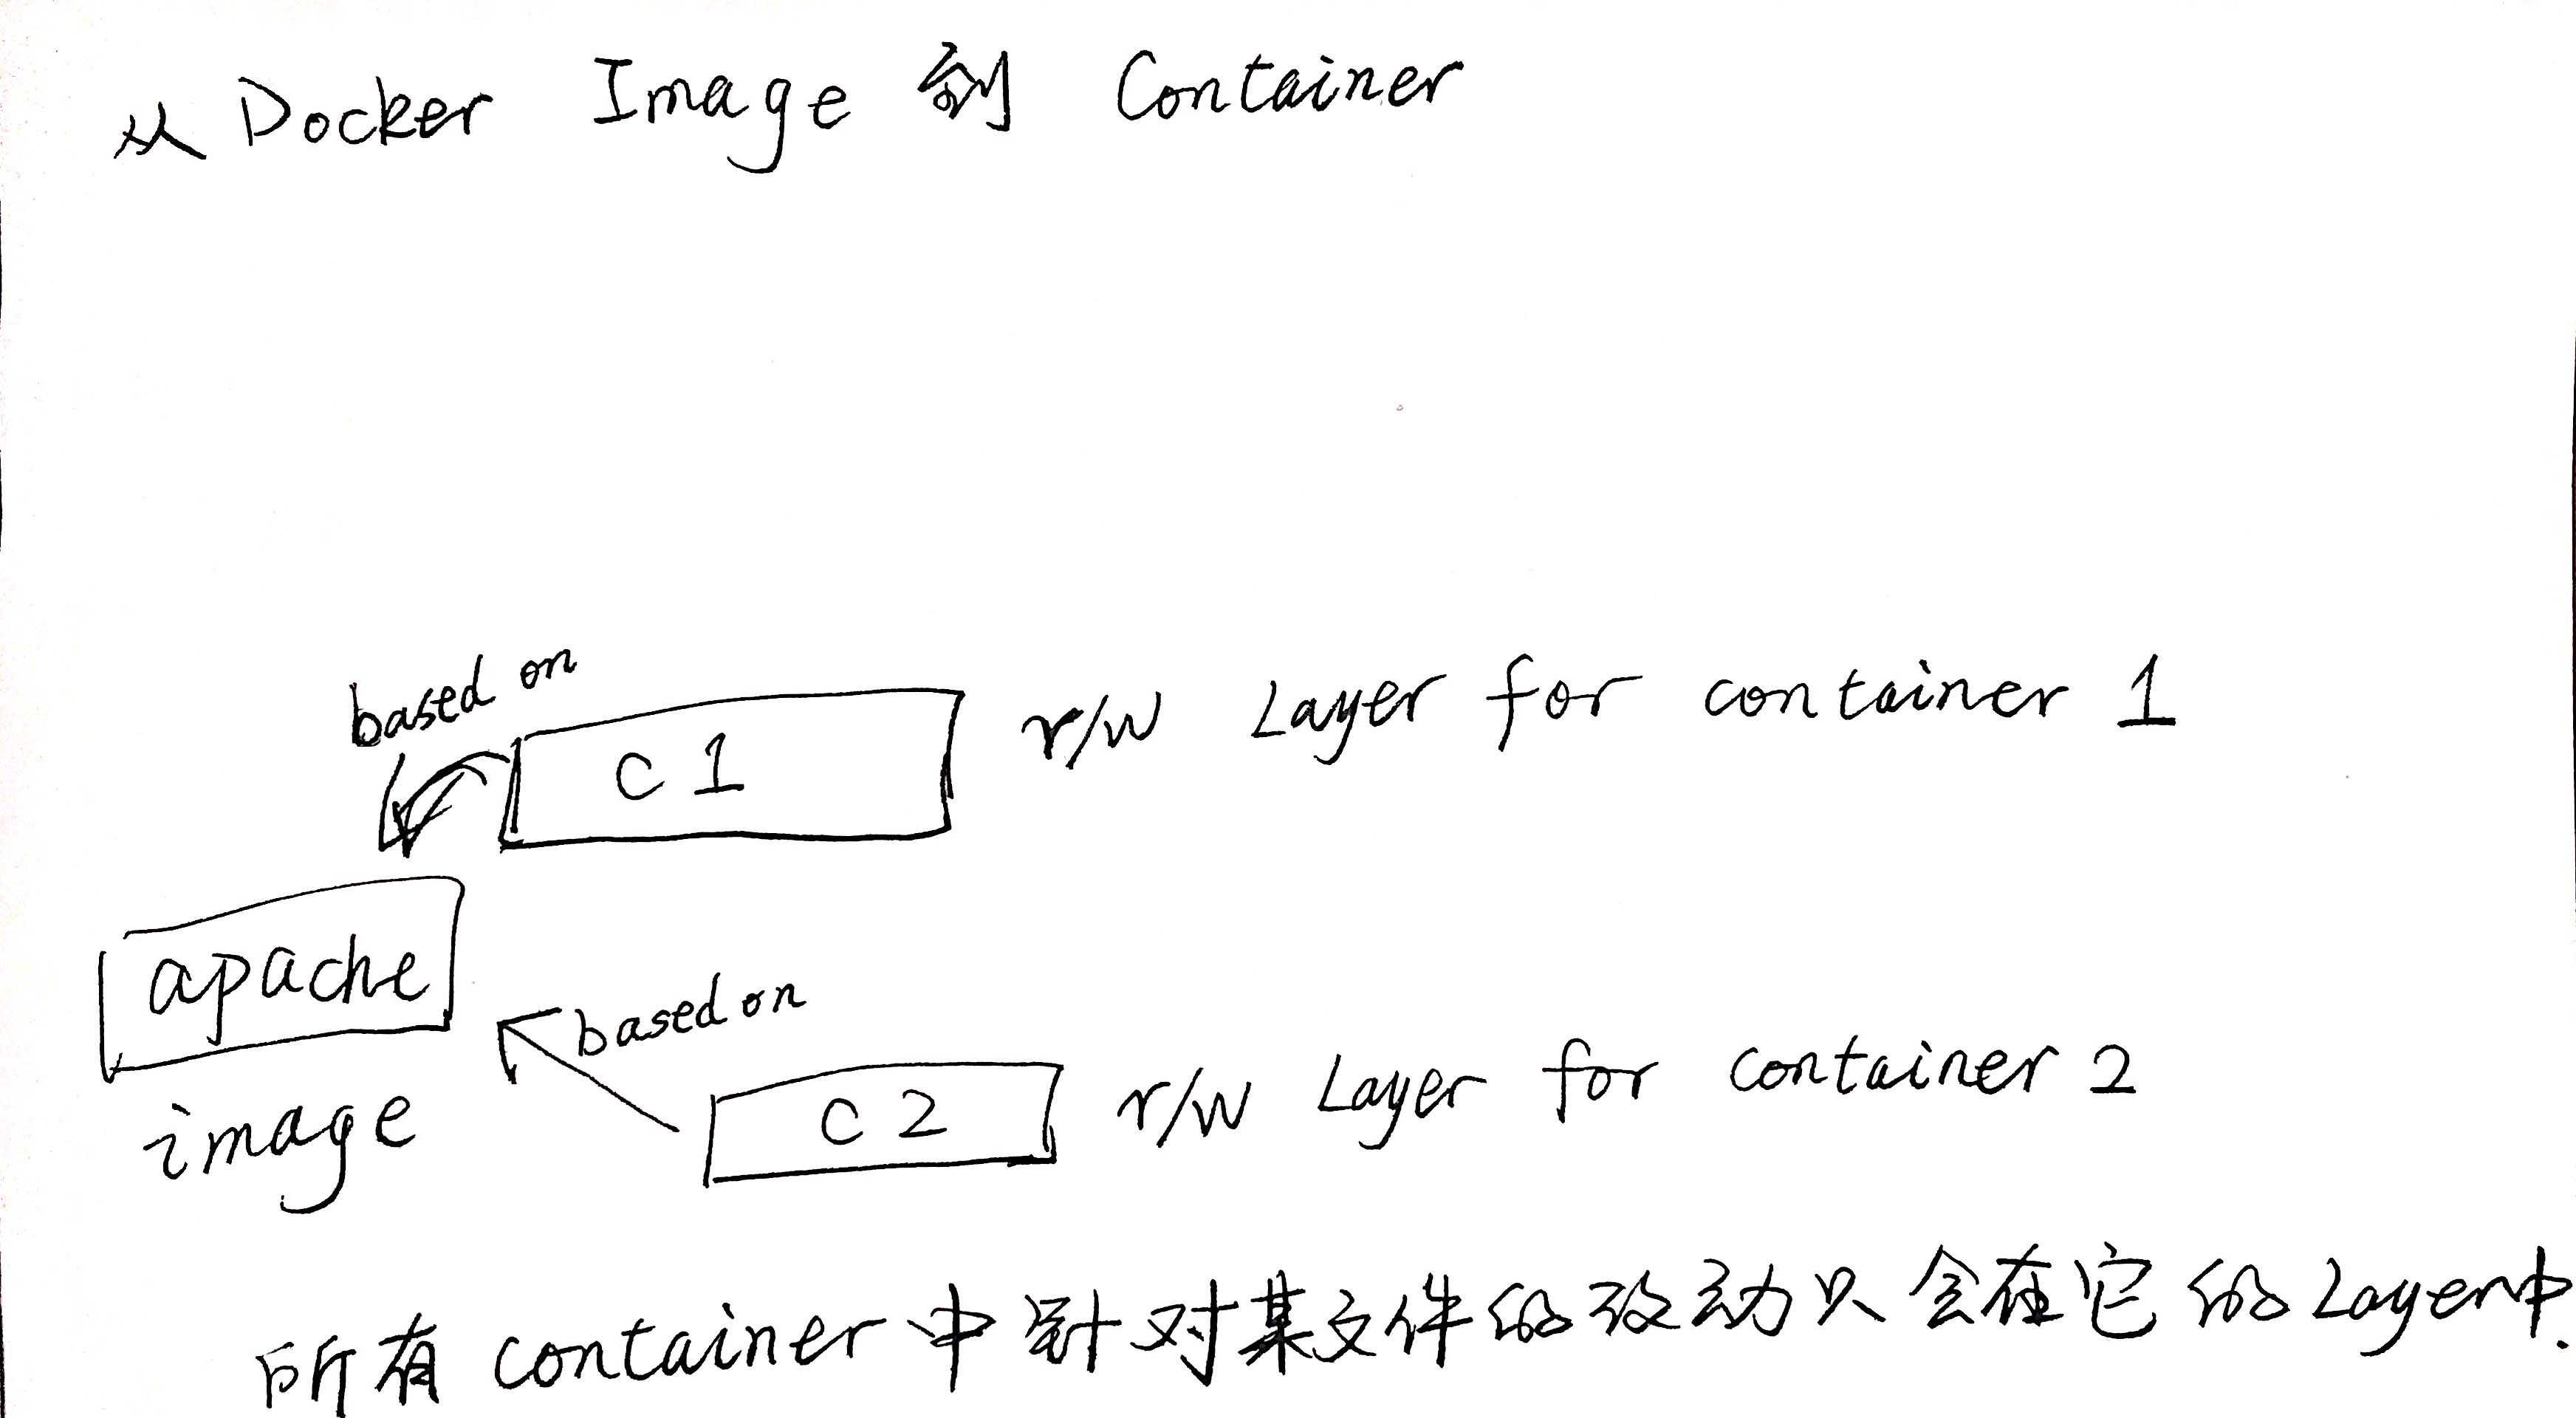 从 Docker Image 到 Container
based on
C 1
r/w Layer for container 1
apache
image
based on
C 2
r/w Layer for container 2
所有 container 中 针对某文件的改动只会在它的Layer中.